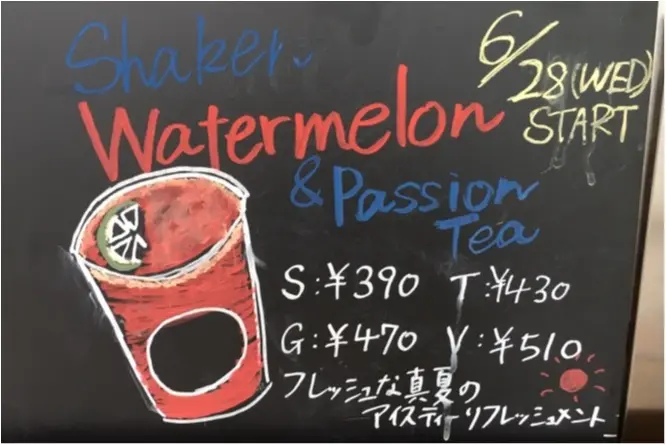 Shaken
Watermelon
& Passion
Tea
6/28(WED)
START
S:¥390 T:¥430
G:¥470 V:¥510
フレッシュな真夏の
アイスティーリフレッシュメント